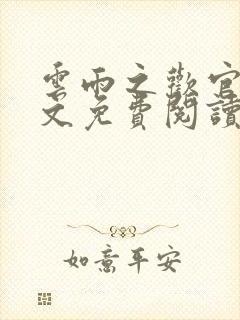 雲雨之歡官
文免費閱讀
如意平安